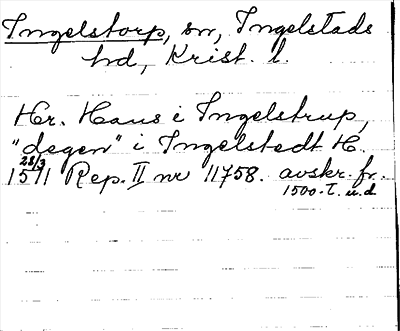 Ingelstorp, sn, Ingelstads
hd, Krist. l.
Hr. Hans i Ingelstrup,
"degen" i Ingelstedt H.
28/3
1511 Rep. II nr 11758. avskr. fr.
1500-t. u.d.